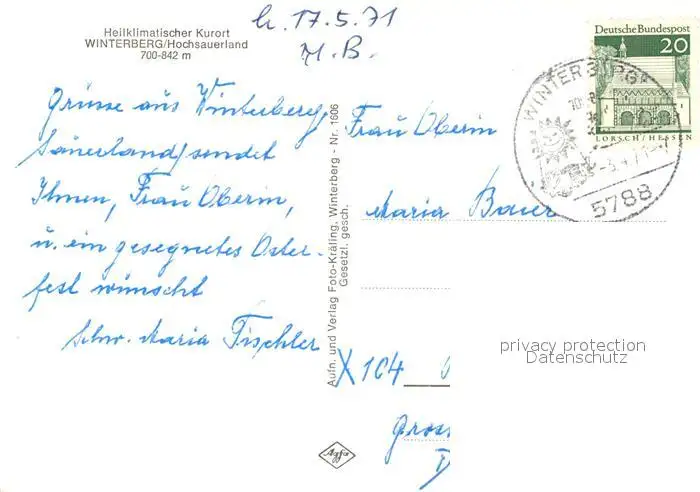 h. 17.5.71
M.B.
Heilklimatischer Kurort
WINTERBERG/Hochsauerland
700-842 m
Grüsse aus Winterberg,
Sauerland/sendet
Ihnen, Frau Oberin,
u. ein gesegnetes Oster-
fest wünscht
Schw. Maria Tischler
Aufn. und Verlag Foto-Kräling, Winterberg - Nr. 1606
Gesetzl. gesch.
Agfa
Deutsche Bundespost
20
LORSCH/HESSEN
WINTERBERG
5788
Frau Oberin
Maria Bauer
X 104
Gross
D
privacy protection
Datenschutz